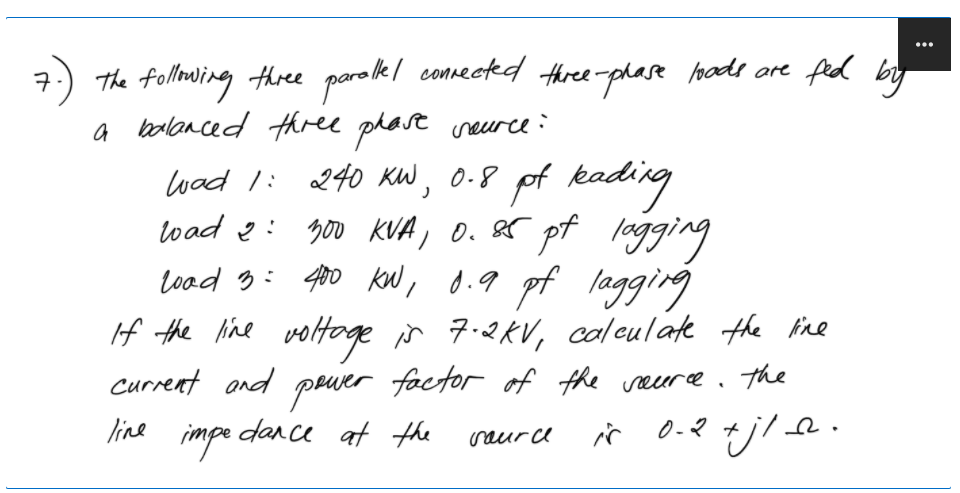 7.) The following three parallel connected three-phase loads are fed by
a balanced three phase source:
load 1: 240 KW, 0.8 pf leading
load 2: 300 KVA, 0.85 pf lagging
load 3: 400 KW, 0.9 pf lagging
If the line voltage is 7.2KV, calculate the line
current and power factor of the source. The
line impedance at the source is 0.2 + j1 Ω.